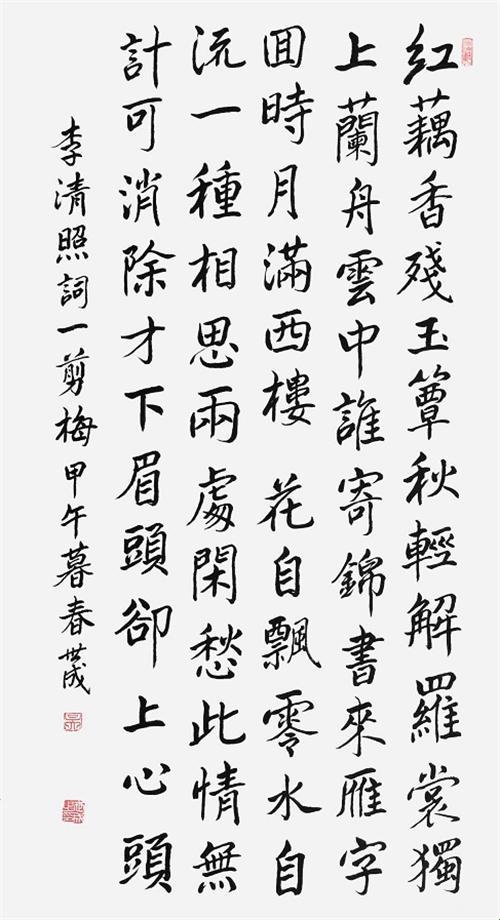 紅藕香殘玉簟秋輕解羅裳獨
上蘭舟雲中誰寄錦書來雁字
囬時月滿西樓 花自飄零水自
流一種相思兩處閑愁此情無
計可消除才下眉頭卻上心頭
李清照詞一剪梅甲午暮春世成